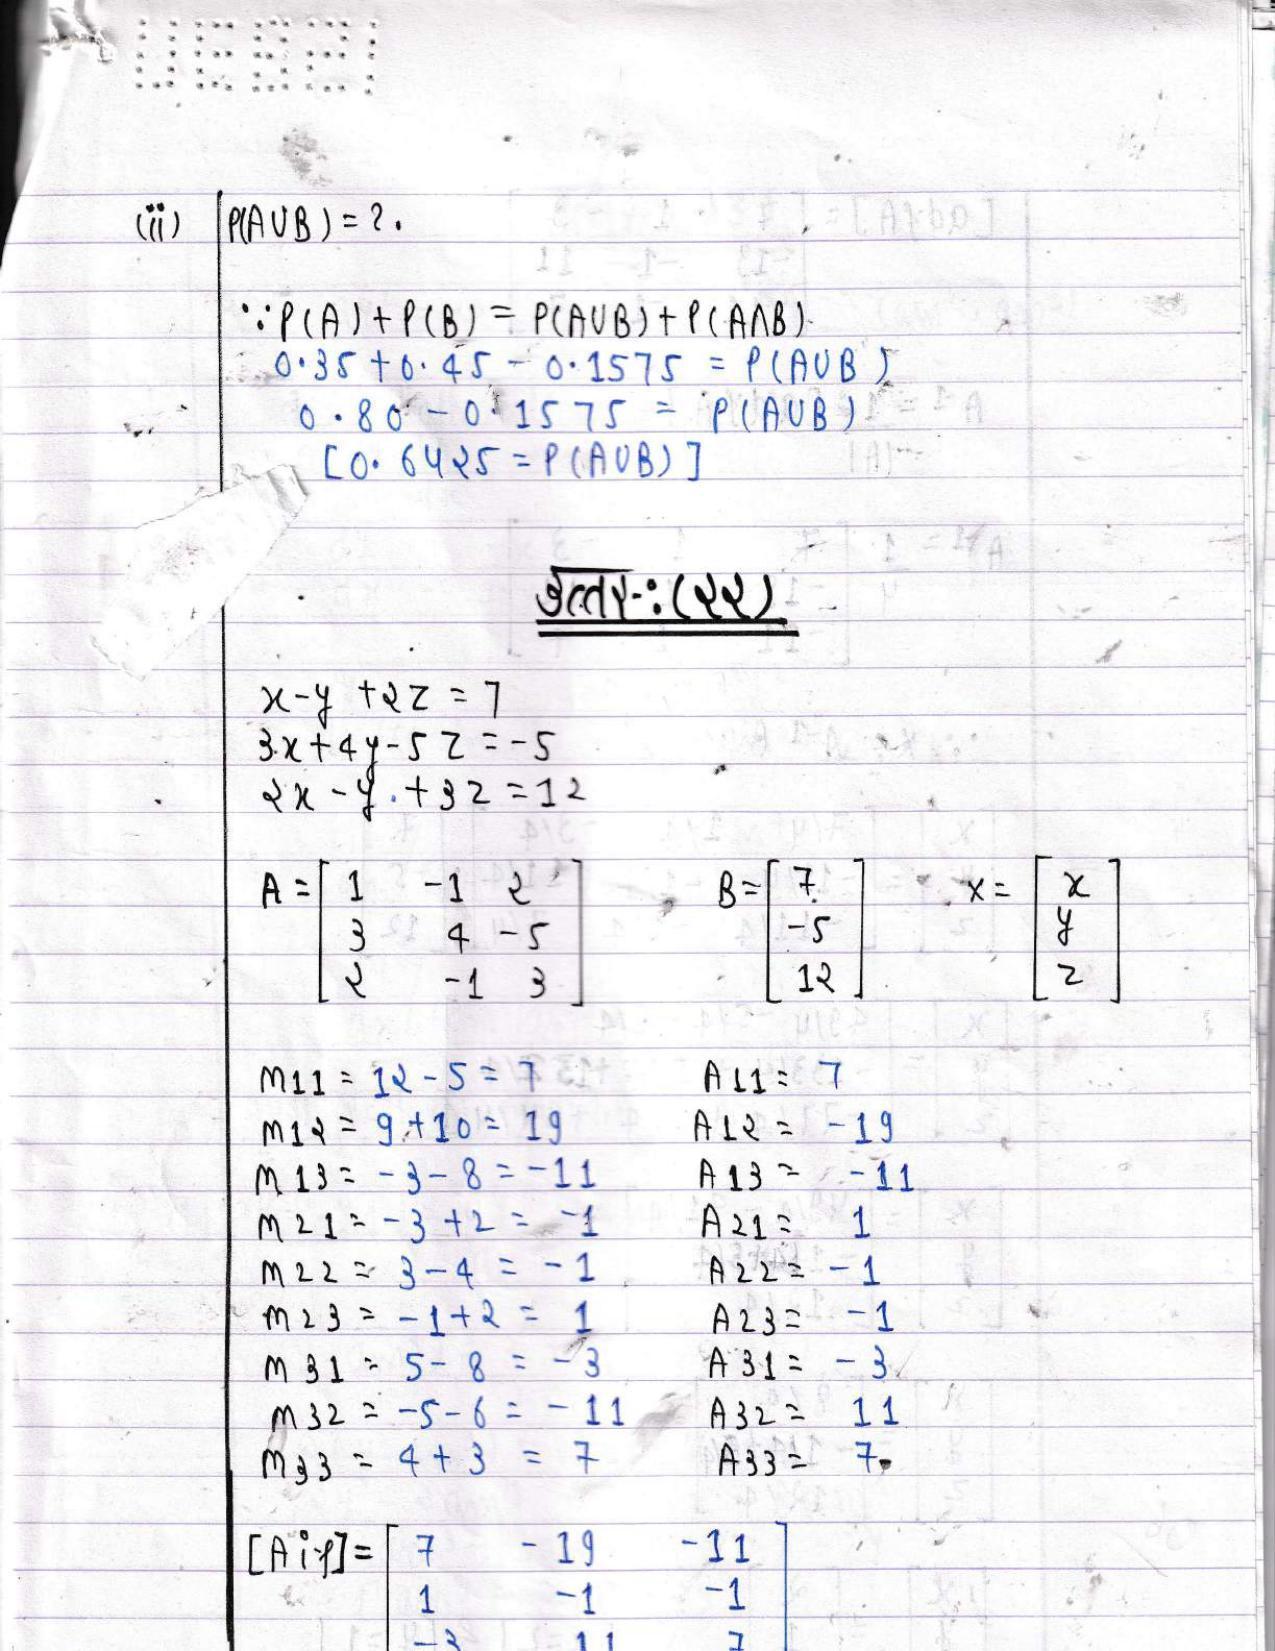 (ii) P(AUB) = ?.
∵ P(A) + P(B) = P(AUB) + P(A∩B).
0.35 + 0.45 - 0.1575 = P(AUB)
0.80 - 0.1575 = P(AUB)
[0.6425 = P(AUB)]
उत्तर-:(२२)
x-y +2z = 7
3x+4y-5z = -5
2x-y.+3z = 12
A = [ 1 -1 2 B = [ 7 x = [ x
3 4 -5 -5 y
2 -1 3 ] 12 ] z ]
M11 = 12-5 = 7 A11 = 7
M12 = 9+10 = 19 A12 = -19
M13 = -3-8 = -11 A13 = -11
M21 = -3+2 = -1 A21 = 1
M22 = 3-4 = -1 A22 = -1
M23 = -1+2 = 1 A23 = -1
M31 = 5-8 = -3 A31 = -3
M32 = -5-6 = -11 A32 = 11
M33 = 4+3 = 7 A33 = 7.
[Aij] = [ 7 -19 -11
1 -1 -1
-3 11 7